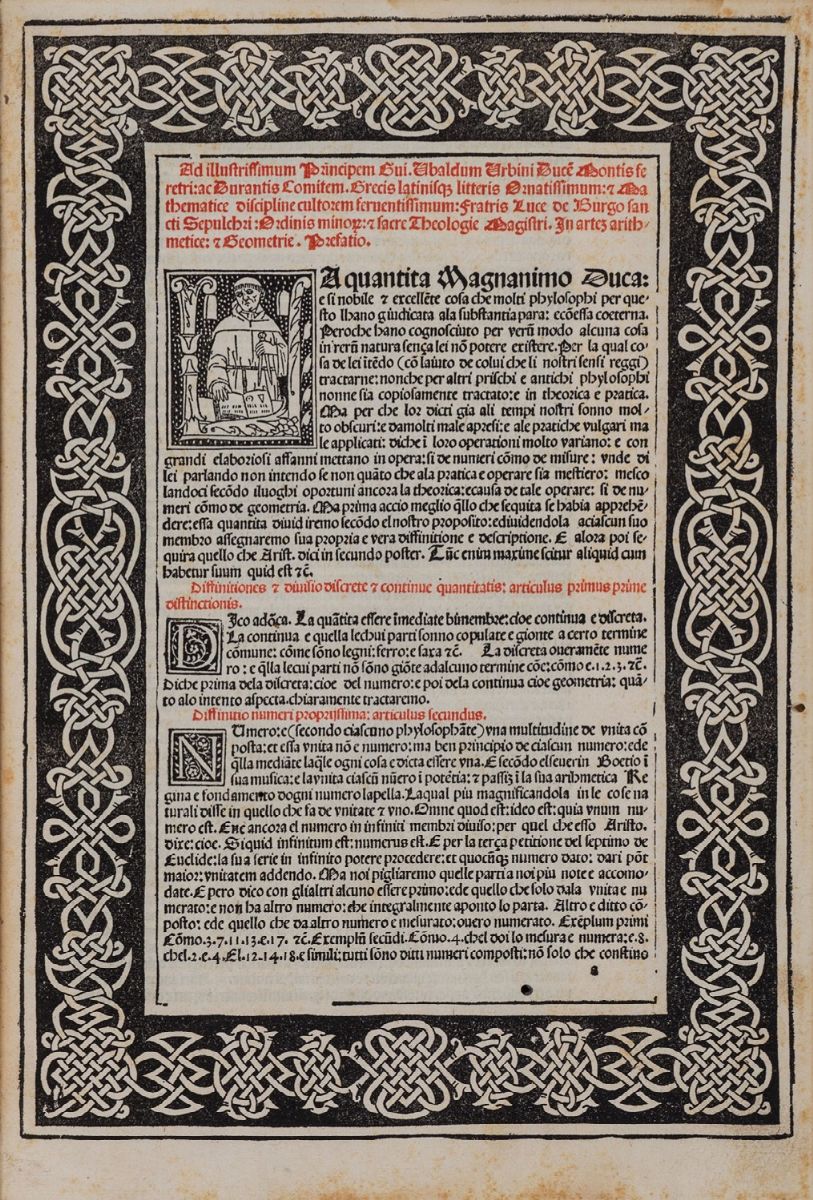 Ad illustrissimum Prīncipem Gui. Ubaldum Urbini Ducē Montis fe
retri: ac Durantis Comitem. Grecis latinisqȝ litteris Ornatissimum: ⁊ Ma
thematice discipline cultorem feruentissimum: Fratris Luce de Burgo san
cti Sepulchri: Ordinis minoꝝ: ⁊ sacre Theologie Magistri. In arteȝ arith⸗
metice: ⁊ Geometrie. Prefatio.
LA quantita Magnanimo Duca:
e si nobile ⁊ excellēte cosa che molti phylosophi per que⸗
sto lhano giudicata ala substantia para: ecōessa coeterna.
Peroche hano cognosciuto per verū modo alcuna cosa
in rerū natura sença lei nō potere existere. Per la qual co⸗
sa de lei ītēdo (cō laiuto de colui che li nostri sensi reggi)
tractarne: nonche per altri prischi e antichi phylosophi
nonne sia copiosamente tractato: e in theorica e pratica.
Ma per che lor dicti gia ali tempi nostri sonno mol⸗
to obscuri: e damolti male apresi: e ale pratiche vulgari ma
le applicati: diche ī loro operationi molto variano: e con
grandi elaboriosi affanni mettano in opera: si de numeri cōmo de misure: vnde di
lei parlando non intendo se non quāto che ala pratica e operare sia mestiero: mesco
landoci secōdo iluoghi oportuni ancora la theorica: ecausa de tale operare: si de nu⸗
meri cōmo de geometria. Ma prima accio meglio q̄llo che sequita se habia apprehē⸗
dere: essa quantita diuid iremo secōdo el nostro proposito: ediuidendola aciascun suo
membro assegnaremo sua propria e vera diffinitione e descriptione. E alora poi se⸗
quira quello che Arist. dici in secundo poster. Tūc enim maxime scitur aliquid cum
habetur suum quid est ⁊c̄.
Diffinitiones ⁊ diuisio discrete ⁊ continue quantitatis: articulus primus prime
distinctionis.
DIco adōca. La quātita essere īmediate bimembre: cioe continua e discreta.
La continua e quella lechui parti sonno copulate e gionte a certo termine
cōmune: cōme sōno legni: ferro: e saxa ⁊c̄. La discreta oueramēte nume
ro: e q̄lla lecui parti nō sōno giōte adalcuno termine cōe: cōmo e.1.2.3. ⁊c̄.
Diche prima dela discreta: cioe del numero: e poi dela continua cioe geometria: quā⸗
to alo intento aspecta. chiaramente tractaremo.
Diffinitio numeri proprijssima: articulus secundus.
NUmero: e (secondo ciascuno phylosophāte) vna multitudine de vnita cō
posta: et essa vnita nō e numero: ma ben principio de ciascun numero: ede
q̄lla mediāte laq̄le ogni cosa e dicta essere vna. E secōdo elseuerin Boetio ī
sua musica: e lavnita ciascū nūero ī potētia: ⁊ passiȝ ī la sua arihmetica Re
gina e fondamēto dogni numero lapella. Laqual piu magnificandola in le cose na
turali disse in quello che fa de vnitate ⁊ vno. Omne quod est: ideo est: quia vnum nu⸗
mero est. Ene ancora el numero in infiniti membri diuiso: per quel che esso Aristo.
dice: cioe. Siquid infinitum est: numerus est. E per la terça petitione del septimo de
Euclide: la sua serie in infinito potere procedere: et quocūqȝ numero dato: dari pōt
maior: vnitatem addendo. Ma noi pigliaremo quelle parti a noi piu note e accomo⸗
date. E pero dico con glialtri alcuno essere primo: ede quello che solo dala vnita e nu
merato: e non ha altro numero: che integralmente aponto lo parta. Altro e ditto cō⸗
posto: ede quello che da altro numero e mesurato: ouero numerato. Exēplum primi
Cōmo.3.7.11.13.e.17. ⁊c̄. Exemplū secūdi. Cōmo.4.chel doi lo mesura e numera: e.8.
chel.2.e.4. El.12.14.18.e simili: tutti sōno ditti numeri compositi: nō solo che constino
a